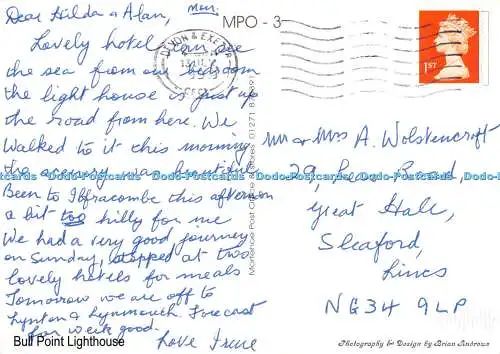 Dear Hilda & Alan,
Mon.
Lovely hotel, can see
the sea from our bedroom
the light house is just up
the road from here. We
walked to it this morning
the scenery was beautiful
Been to Ilfracombe this afternoon
a bit too hilly for me
We had a very good journey
on Sunday, stopped at two
lovely hotels for meals
Tomorrow we are off to
Lynton & Lynmouth. Forecast
for week good.
Love Irene
Bull Point Lighthouse
MPO - 3
DEVON & EXETER
1ST
Mortehoe Post Office & Stores 01271
Mr & Mrs A. Wolstencroft
29, Road,
Great Hale,
Sleaford,
Lincs
NG34 9LP
Photography & Design by Brian Andrews
Dodo-Postcards Dodo-Postcards Dodo-Postcards Dodo-Postcards Dodo-Postcards